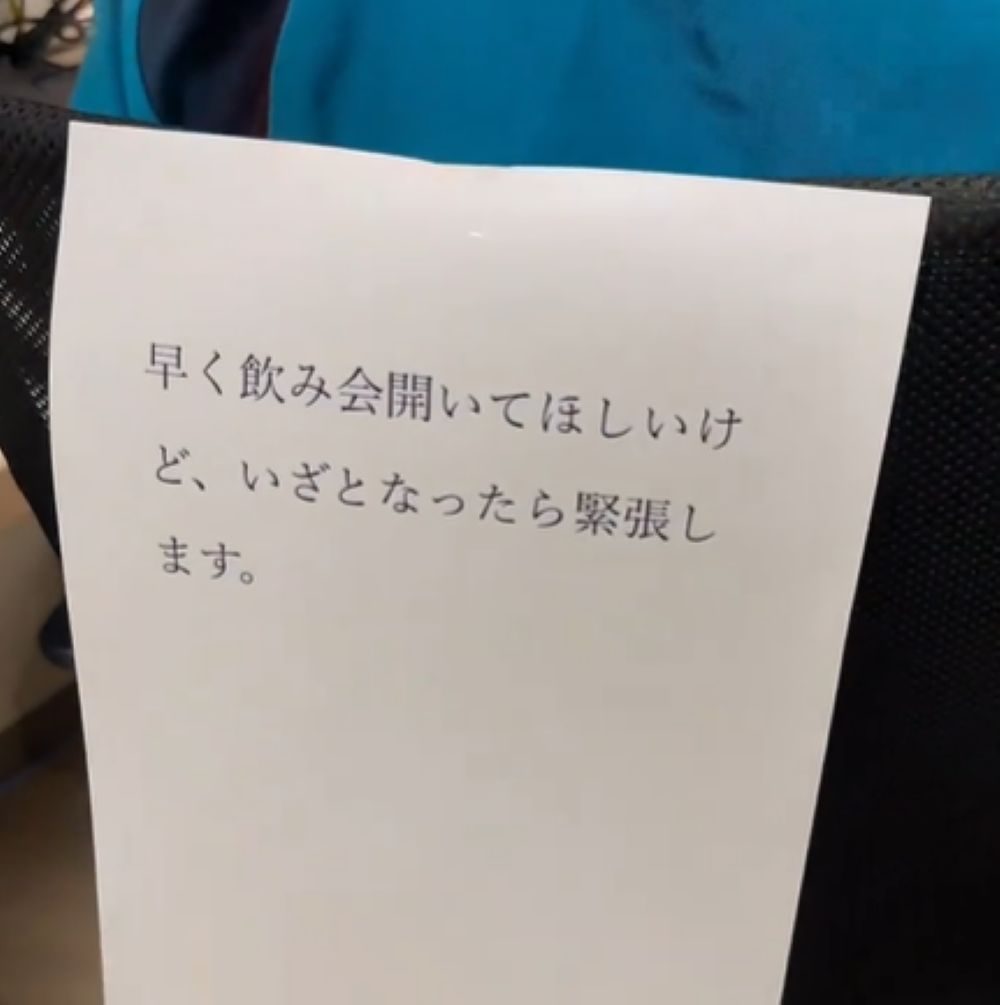 早く飲み会開いてほしいけ
ど、いざとなったら緊張し
ます。